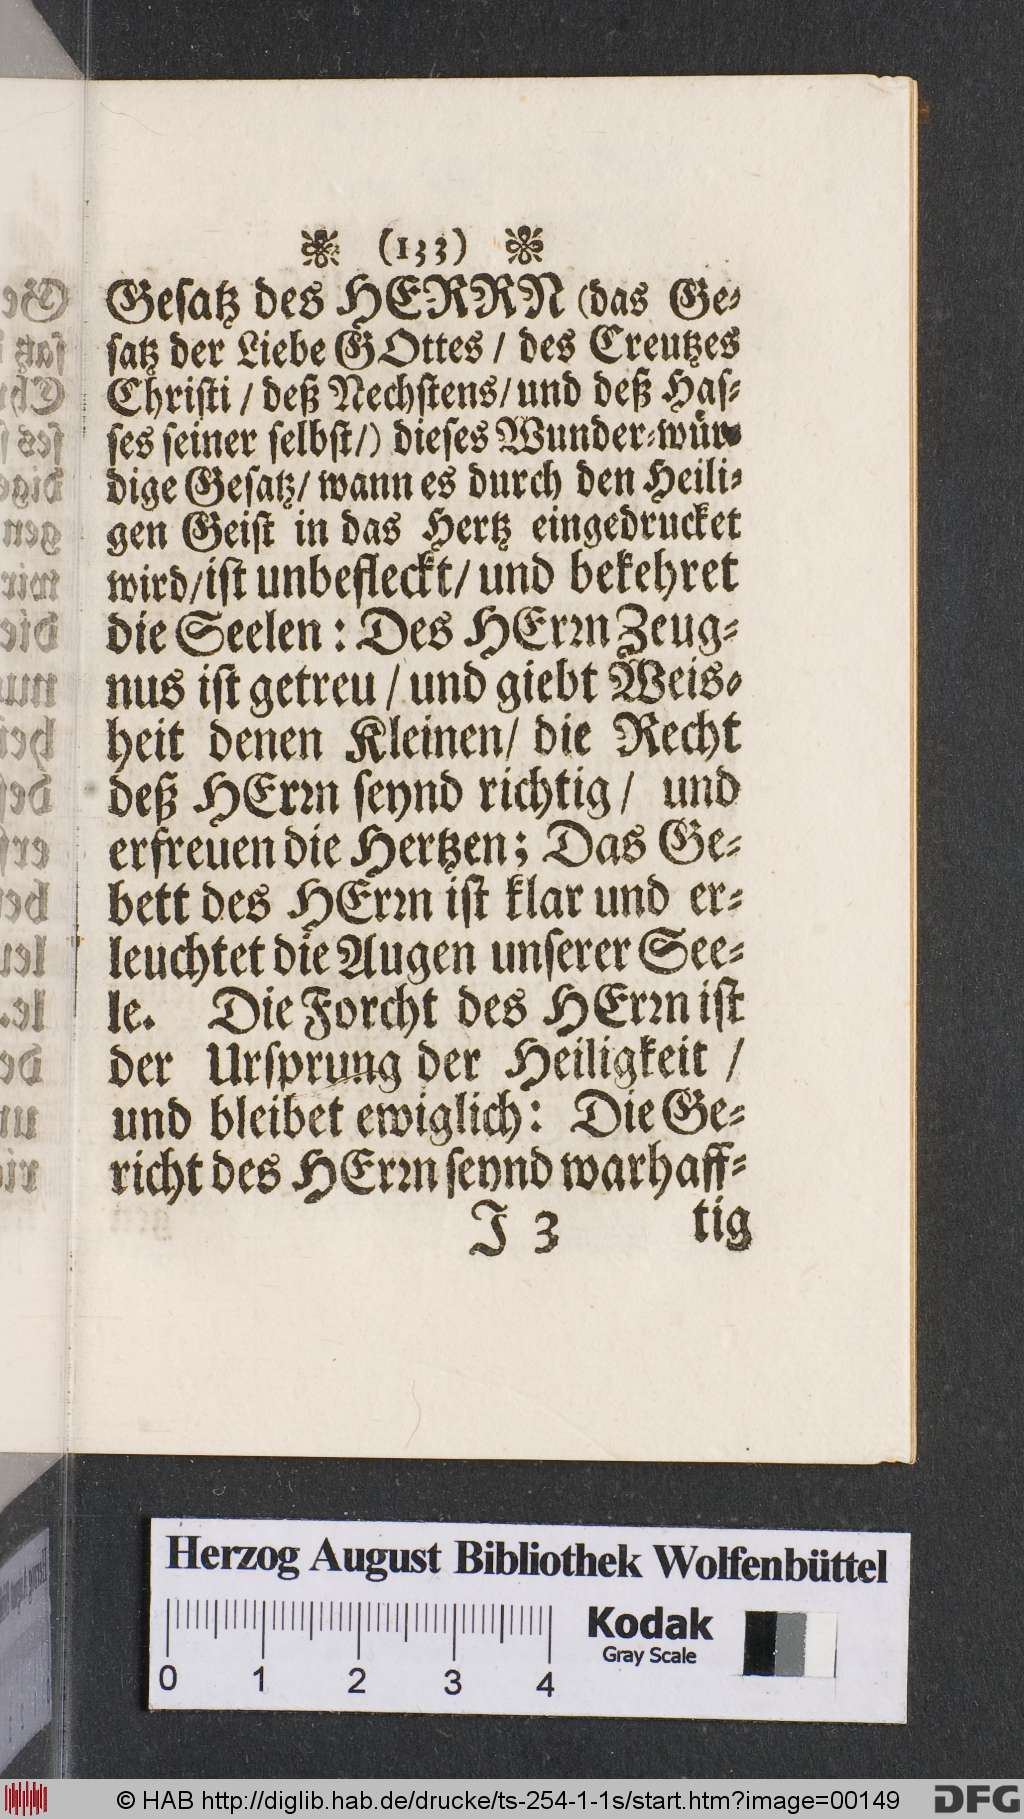 ❀ (133) ❀
Gesatz des HERRN (das Ge-
satz der Liebe GOttes / des Creutzes
Christi / deß Nechstens / und deß Has-
ses seiner selbst /) dieses Wunder-wür-
dige Gesatz / wann es durch den Heili-
gen Geist in das Hertz eingedrucket
wird / ist unbefleckt / und bekehret
die Seelen : Des HErrn Zeug-
nus ist getreu / und giebt Weis-
heit denen Kleinen / die Recht
deß HErrn seynd richtig / und
erfreuen die Hertzen ; Das Ge-
bett des HErrn ist klar und er-
leuchtet die Augen unserer See-
le. Die Forcht des HErrn ist
der Ursprung der Heiligkeit /
und bleibet ewiglich : Die Ge-
richt des HErrn seynd warhaff-
J 3 tig
Herzog August Bibliothek Wolfenbüttel
Kodak
Gray Scale
0 1 2 3 4
© HAB http://diglib.hab.de/drucke/ts-254-1-1s/start.htm?image=00149
DFG